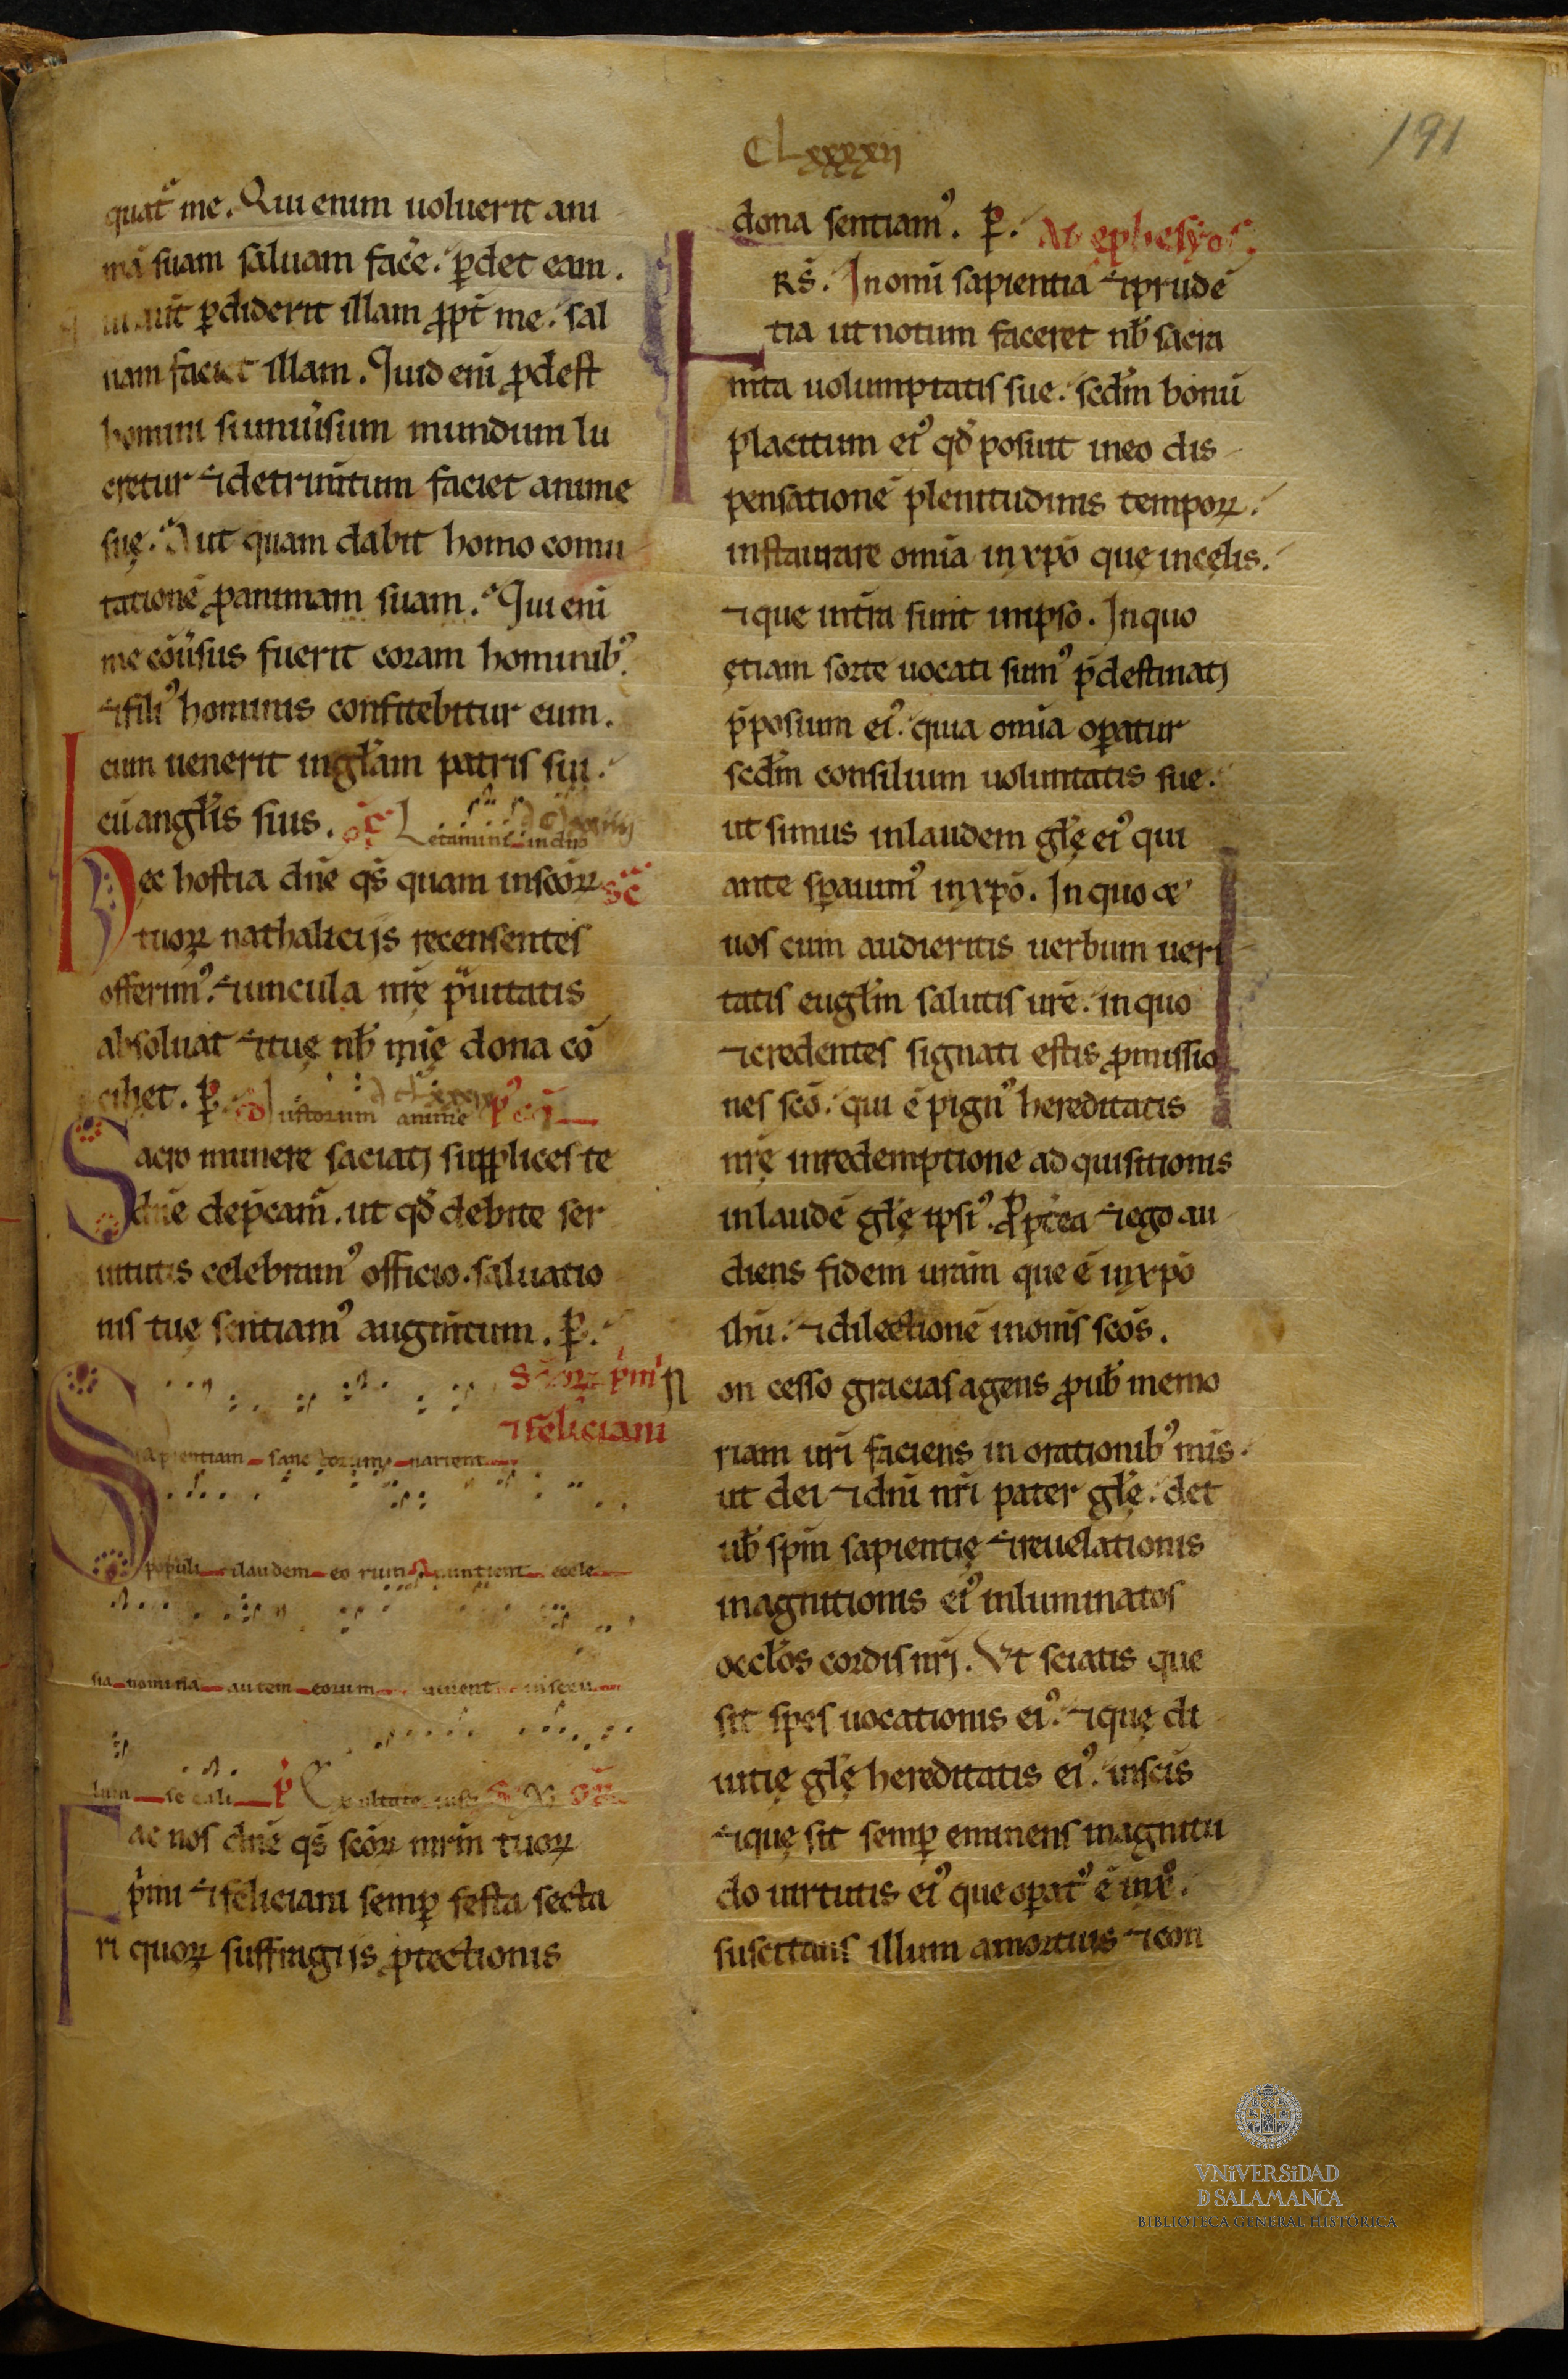 191
CLxxxxii
quat᷒ me. Qui enim uoluerit ani
mā suam saluam facͤe. ꝑdet eam.
ui aut̄ ꝑdiderit illam ꝓpt̄ me. sal
uam faciet illam. Quid eni ꝓdest
homini si uniūsum mundum lu
cretur ⁊ detrim̄tum faciet anime
suę. Aut quam dabit homo comu
tationē ꝓ anima suam. Qui eni
me cōūsus fuerit coram hominibꝰ.
⁊ filiꝰ hominis confitebitur eum.
cum uenerit in gl̄am patris sui.
cū angl̄is suis. oͤ Letamini in dn̄o
ec hostia dn̄e qs̄ quam in sc̄oꝝ sēc
tuoꝝ nathalicijs recensentes
offerimꝰ. ⁊ uincula nr̄ę p̄uitatis
absoluat ⁊ tuę nb̄ mię dona cō
cihet. ꝑ. Co Iustorum anime
Sacro munere saciatj supplices te
dn̄e dep̄cam̄. ut qd̄ debite ser
uitutis celebramꝰ officio. saluatio
nis tuę sentiamꝰ augm̄tum. ꝑ.
Sc̄oꝝ p̄mi
⁊ feliciani
Sapientiam sanctorum narient
populi ⁊ laudem eorum nuntient eccle
sia nomina autem eorum uiuent in secu
lum seculi p̄ Exultate iusti
Fac nos dn̄e qs̄ sc̄oꝝ mr̄m tuoꝝ
p̄mi ⁊ feliciani semꝑ festa secta
ri quoꝝ suffragijs ꝓtectionis
dona sentiamꝰ. ꝑ. Ad ephesyos.
FRS̄. In omī sapientia ⁊ prudē
tia ut notum faceret nb̄ sacra
m̄ta uolumptatis sue. sedm̄ bonū
placitum eiꝰ qd̄ posuit in eo dis
pensationē plenitudinis tempoꝝ.
instaurare omīa in xp̄o que in cęlis.
⁊ que in t̄ra sunt in ipso. In quo
ętiam sorte uocati sumꝰ p̄destinatj
p̄posium eiꝰ. quia omīa oꝑatur
sedm̄ consilium uoluntatis sue.
ut simus in laudem gl̄ę eiꝰ qui
ante sꝑauimꝰ in xp̄o. In quo ⁊
uos cum audieritis uerbum ueri
tatis eugl̄m salutis ur̄e. in quo
⁊ credentes signati estis ꝓmissio
nes sc̄o. qui ē pignꝰ hereditatis
nr̄ę in redemptione adquisitionis
in laudē gl̄ę ipsiꝰ. Ꝓpt̄ea ⁊ ego au
diens fidem ur̄am que ē in xp̄o
ih̄u. ⁊ dilectionē in om̄s sc̄os.
Non cesso gracias agens ꝓ ub̄ memo
riam ur̄i faciens in orationibꝰ mis.
ut dei ⁊ dn̄i nr̄i pater gl̄ę. det
ub̄ spm̄ sapientię ⁊ reuelationis
in agnitionis eiꝰ inluminatos
occl̄os cordis nr̄j. Vt sciatis que
sit spes uocationis eiꝰ. ⁊ quę di
uitię gl̄ę hereditatis eiꝰ. in sc̄is
⁊ quę sit semꝑ eminens magnitu
do uirtutis eiꝰ que oꝑat᷒ ē in xͦ.
suscitans illum a mortuis ⁊ con
VNiVERSiDAD
D SALAMANCA
BIBLIOTECA GENERAL HISTÓRICA